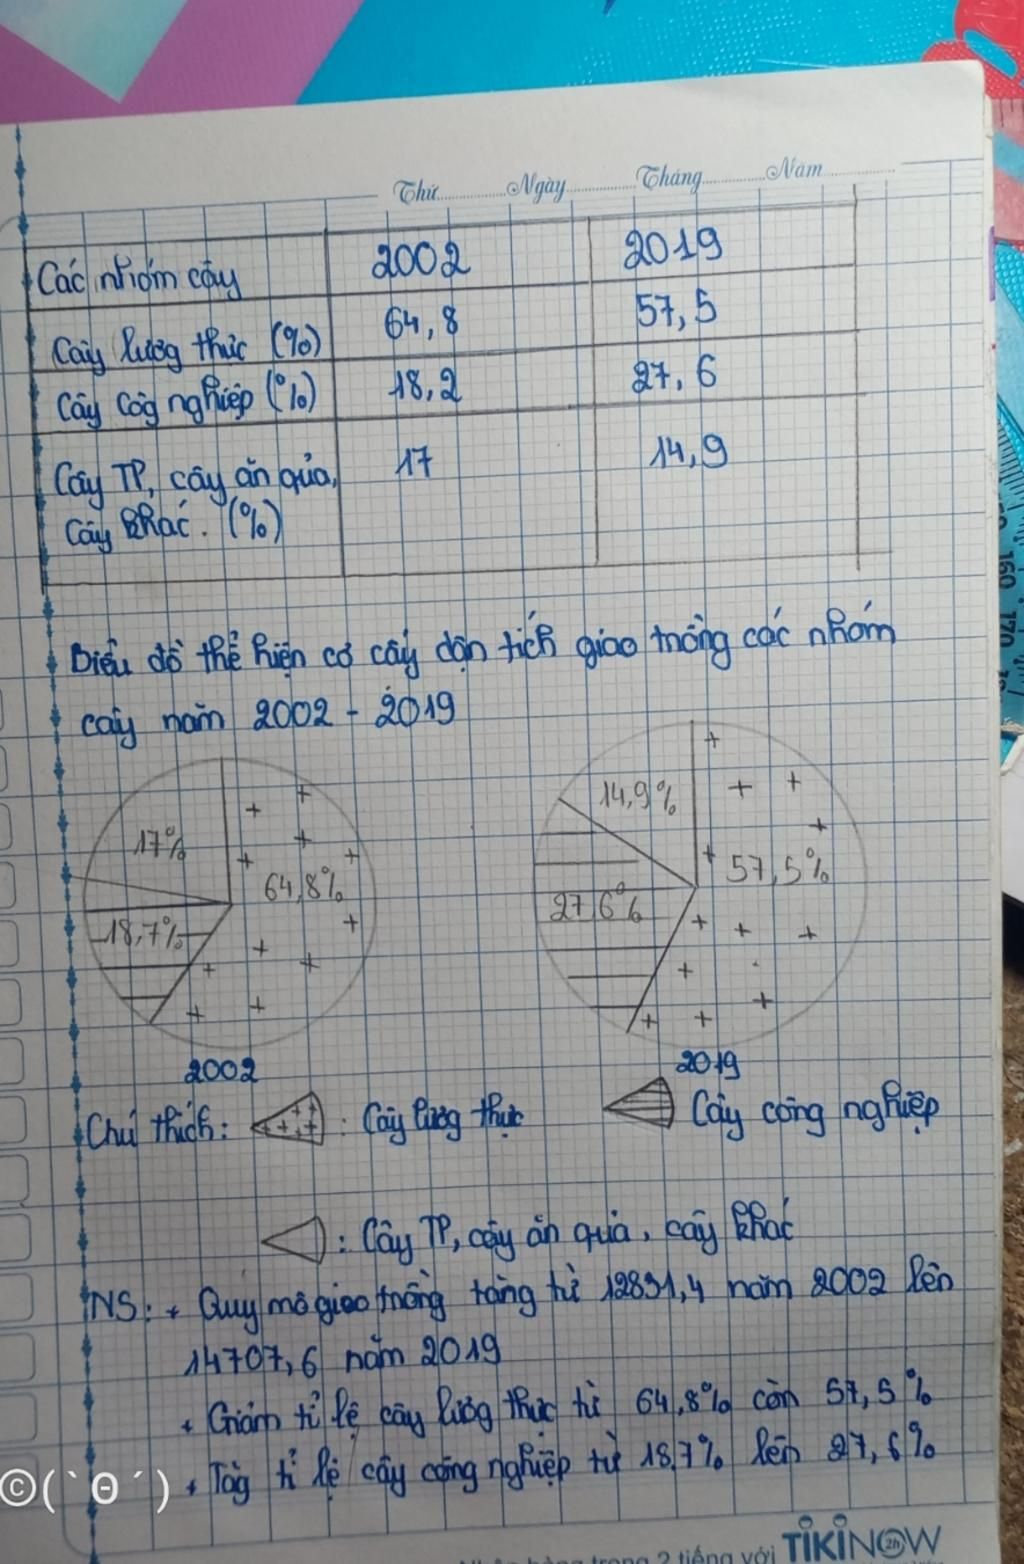 Thứ........Ngày........Tháng........Năm........
Các nhóm cây 2002 2019
Cây lương thức (%) 64,8 57,5
Cây côg nghiệp (%) 18,2 27,6
Cây TP, cây ăn quả, 17 14,9
Cây khác. (%)
Biểu đồ thể hiện cơ cấy dện tích gieo trồng các nhóm
cây năm 2002 - 2019
17% 64,8% 18,7%
14,9% 57,5% 27,6%
2002 2019
Chú thích: : Cây lươg thực Cây công nghiệp
: Cây TP, cây ăn quả, cây khác
NS: + Quy mô gieo trồng tăng từ 12831,4 năm 2002 lên
14707,6 năm 2019
+ Giảm tỉ lệ cây lươg thực từ 64,8% còn 57,5%
+ Tăg tỉ lệ cây công nghiệp từ 18,7% lên 27,6%
©(`Θ´)
trong 2 tiếng với TiKiNOW
2h
160
170